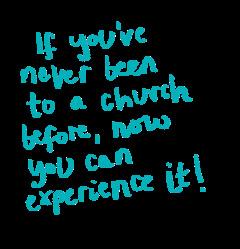 If you've
never been
to a church
before, now
you can
experience it!